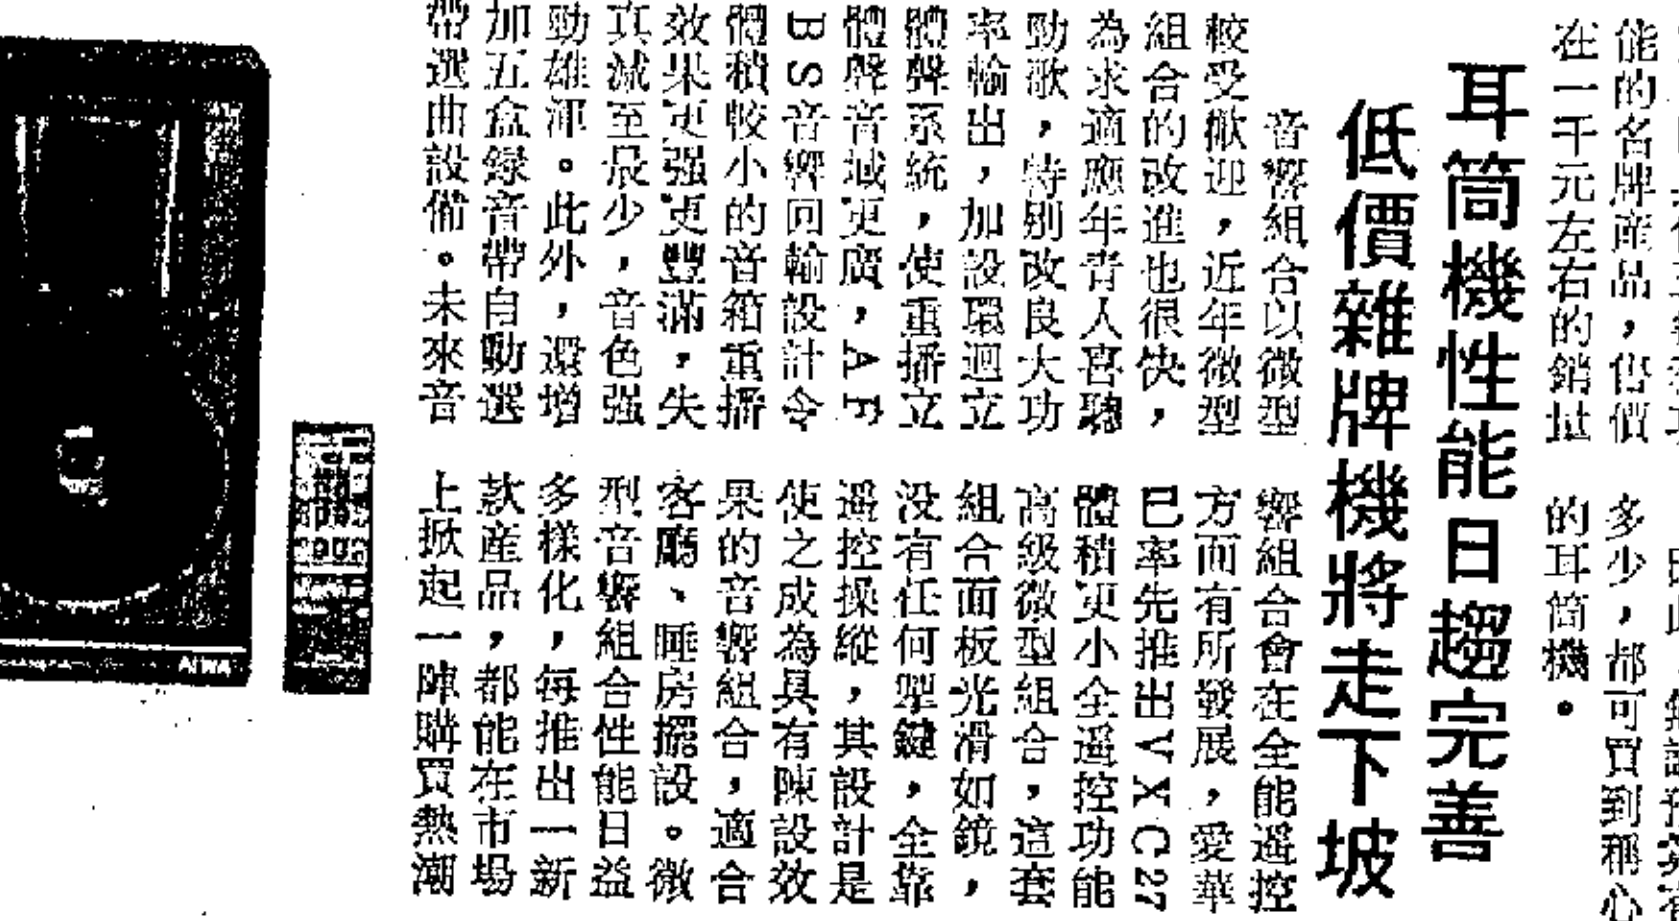 能的名牌產品，售價
在一千元左右的銷量
多少，都可買到稱心
的耳筒機。
耳筒機性能日趨完善
低價雜牌機將走下坡
音響組合以微型
較受歡迎，近年微型
組合的改進也很快，
為求適應年青人喜聽
勁歌，特別改良大功
率輸出，加設環迴立
體聲系統，使重播立
體聲音域更廣，AF
BS音響回輸設計令
體積較小的音箱重播
效果更强更豐滿，失
真減至最少，音色强
勁雄渾。此外，還增
加五盒錄音帶自動選
帶選曲設備。未來音
響組合會在全能遥控
方面有所發展，愛華
已率先推出VXC27
體積更小全遥控功能
高級微型組合，這套
組合面板光滑如鏡，
没有任何掣鍵，全靠
遥控操縱，其設計是
使之成為具有陳設效
果的音響組合，適合
客廳、睡房擺設。微
型音響組合性能日益
多樣化，每推出一新
款產品，都能在市場
上掀起一陣購買熱潮
AIWA